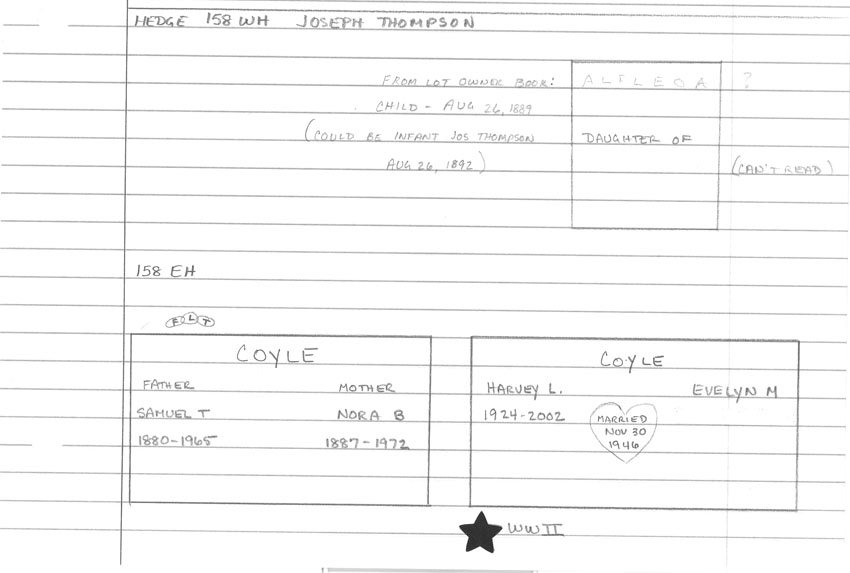 HEDGE 158 WH JOSEPH THOMPSON
FROM LOT OWNER BOOK: ALFLEOA ?
CHILD - AUG 26, 1889
(COULD BE INFANT JOS THOMPSON DAUGHTER OF
AUG 26, 1892) (CAN'T READ)
158 EH
FLT
COYLE
FATHER MOTHER
SAMUEL T NORA B
1880-1965 1887-1972
COYLE
HARVEY L. EVELYN M
1924-2002
MARRIED
NOV 30
1946
WWII